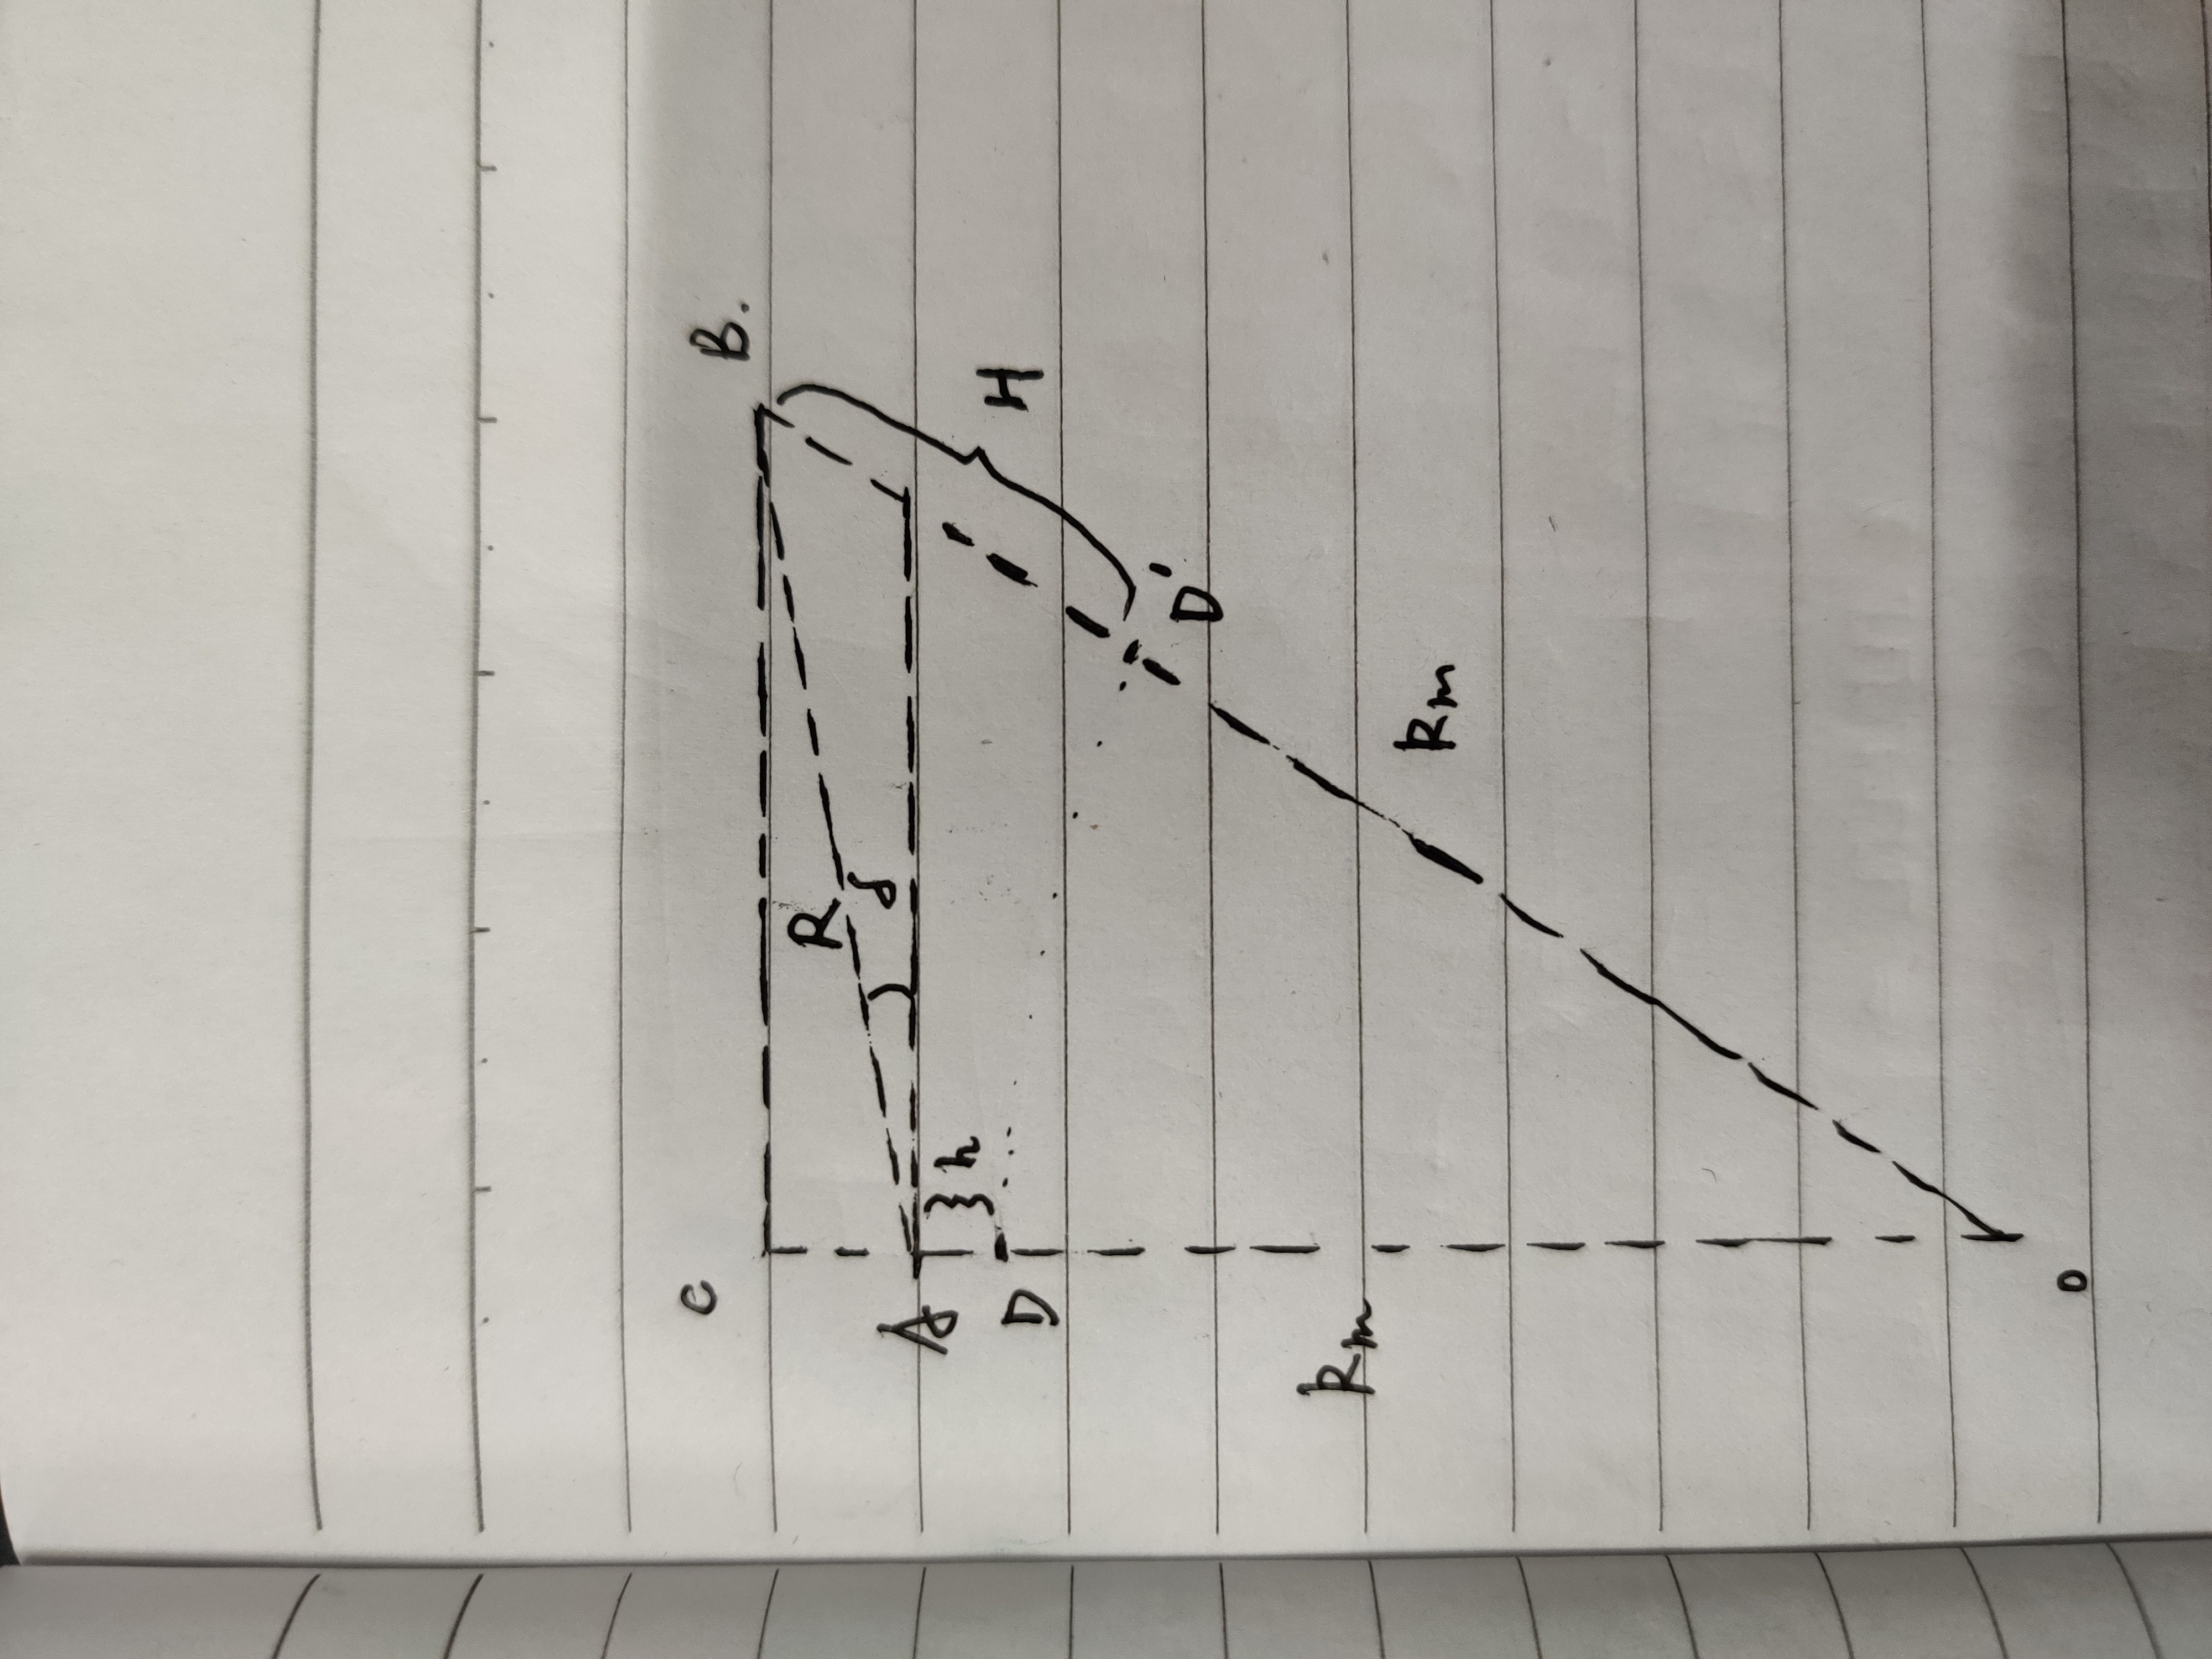 C
B.
R
δ
A
h
D
H
D'
Rm
Rm
O